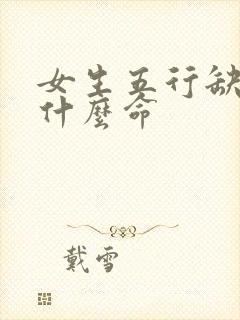 女生五行缺
什麼命
戴雪